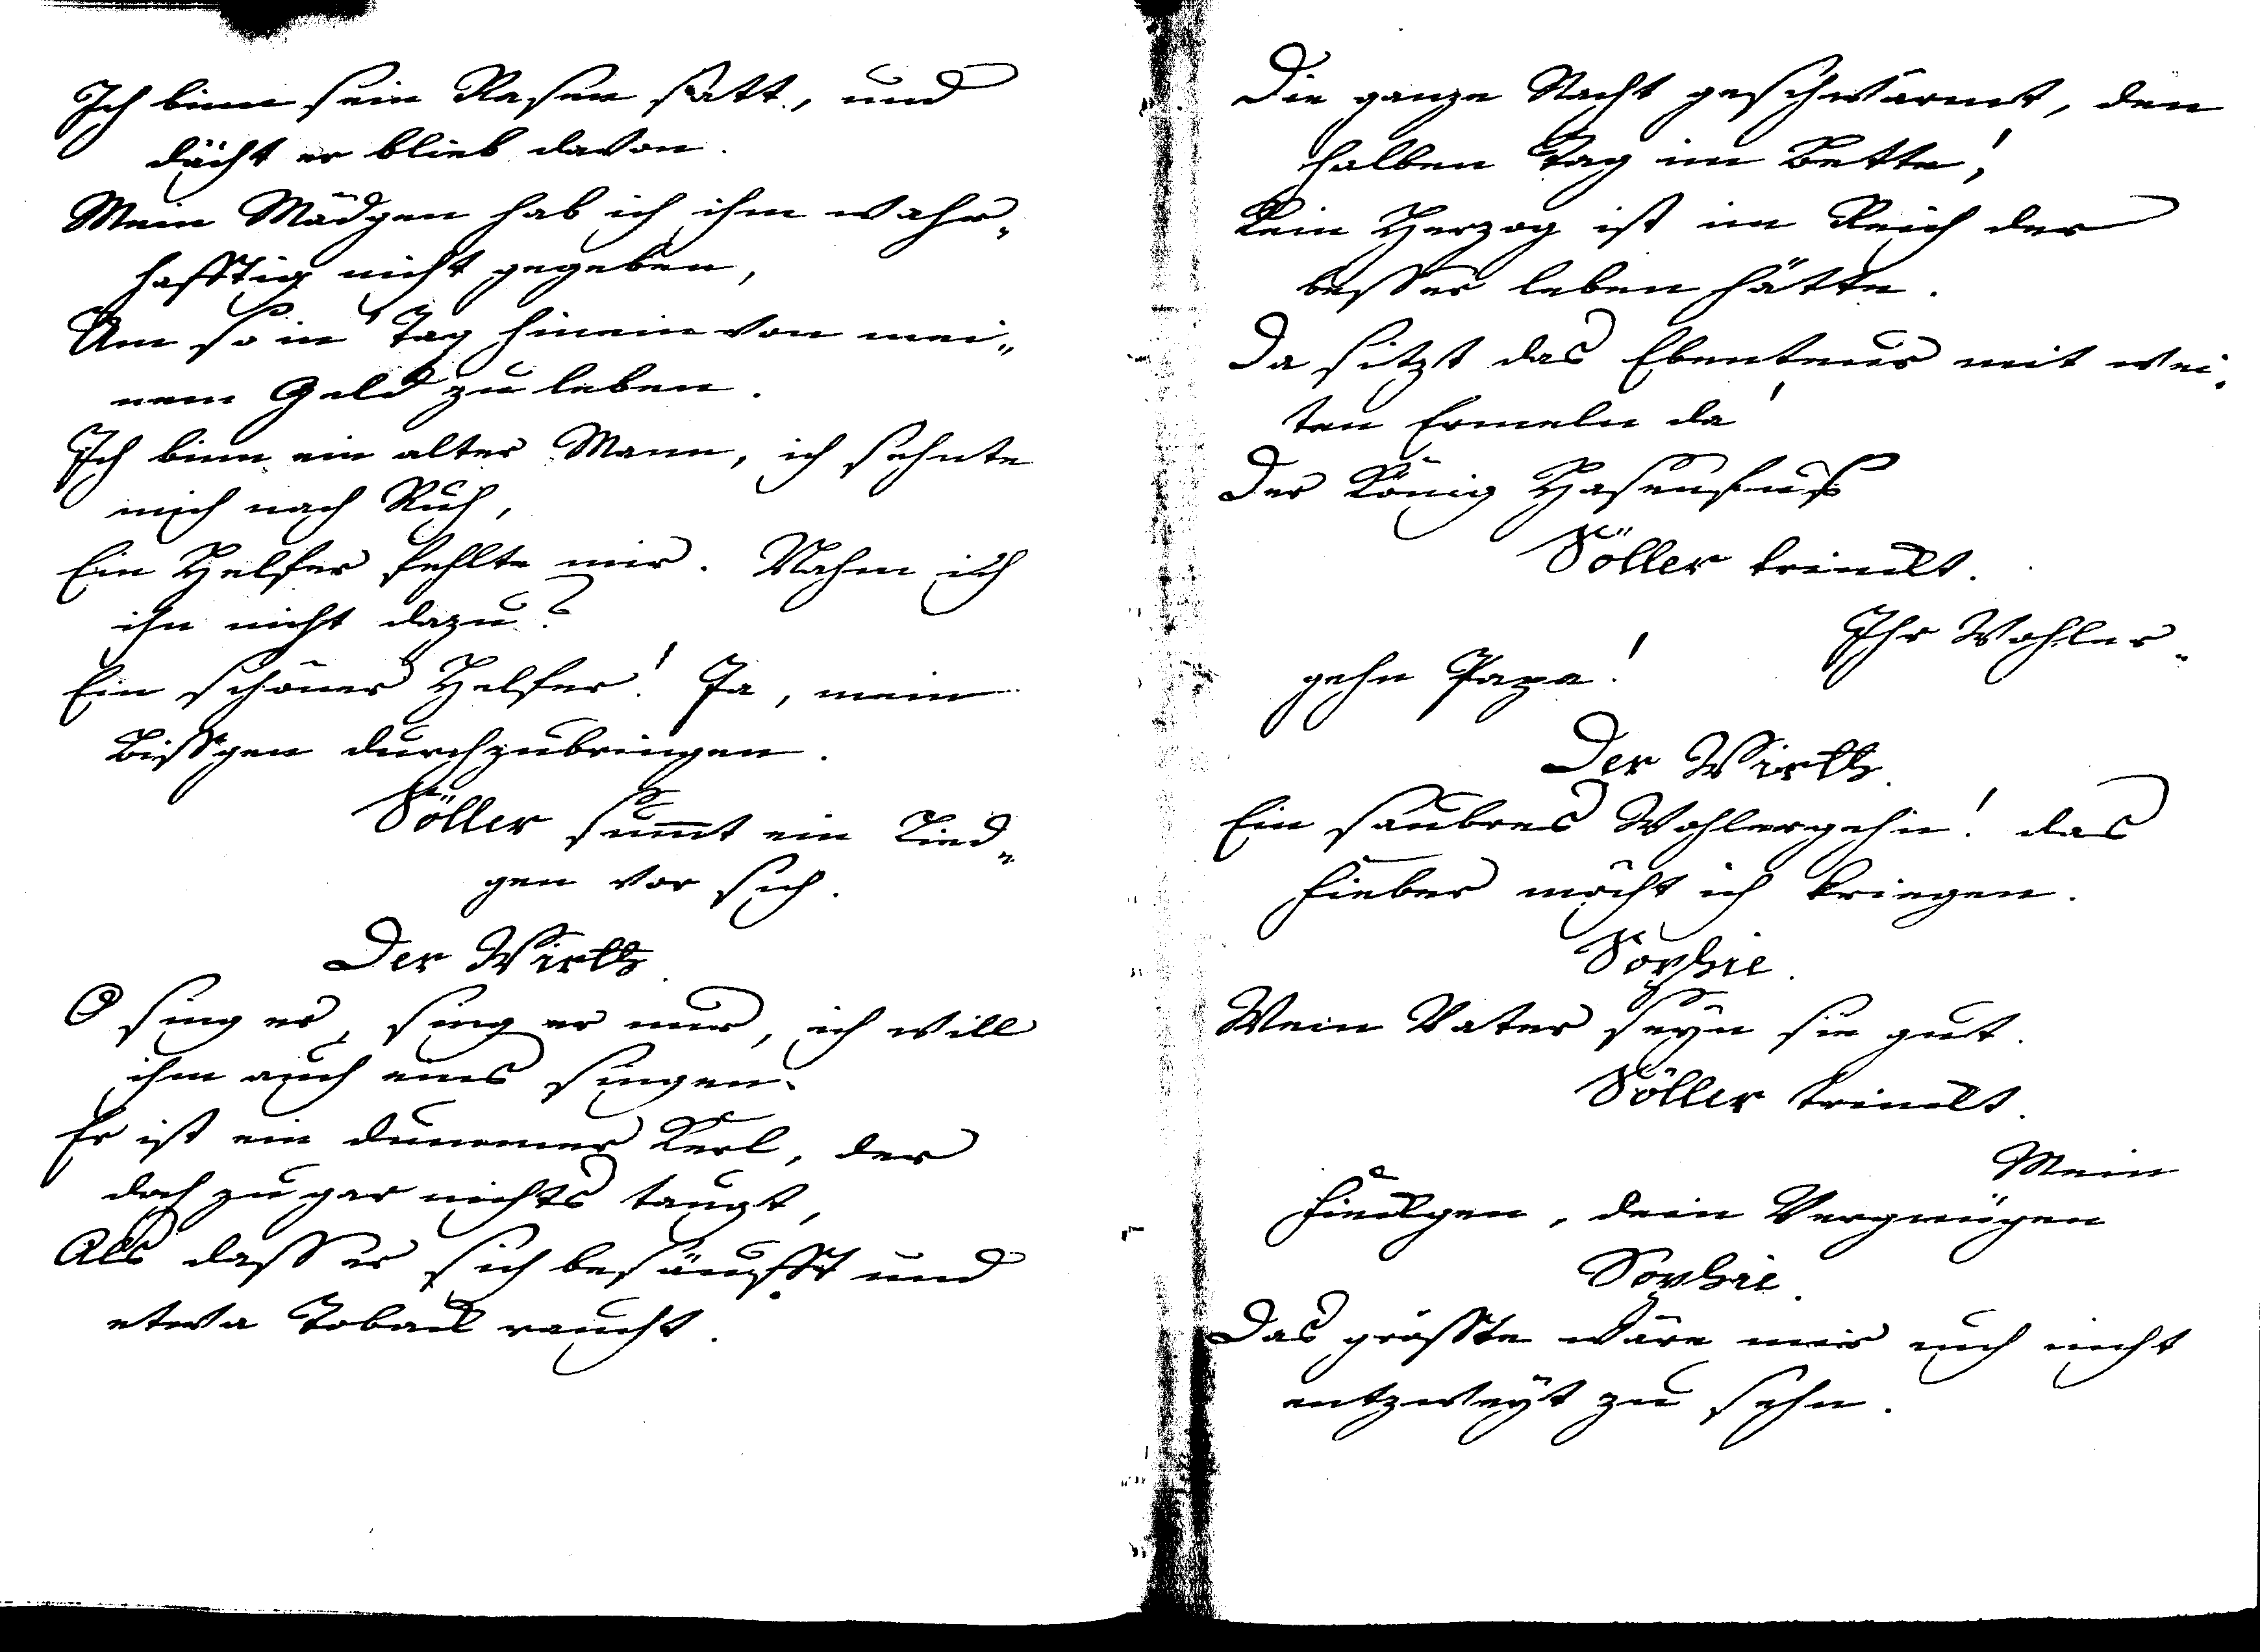 Ich binn sein Rasen satt, und
dächt er blieb davon.
Mein Mädgen hab ich ihm wahr„
hafftig nicht gegeben,
Um so in Tag hinein von mei„
nem Geld zu leben.
Ich binn ein alter Mann, ich sehnte
mich nach Ruh,
Ein Helfer fehlte mir. Nahm ich
ihn nicht dazu?
Ein schöner Helfer! Ja, mein
Bissgen durchzubringen.
Söller summt ein Lied„
gen vor sich.
Der Wirth.
O sing er, sing er nur, ich will
ihm auch eins singen.
Er ist ein dummer Kerl, der
doch zu gar nichts taugt,
Als dass er sich besäufft und
etwa Toback raucht.
Die ganze Nacht geschwärmt, den
halben Tag im Bette!
Kein Herzog ist im Reich der
besser leben hätte.
Da sitzt das Ebenteuer mit wei„
ten Ermeln da!
Der König Hasenfuß
Söller trinckt.
Ihr Wohler„
gehn Papa!
Der Wirth.
Ein saubres Wohlergehn! das
Fieber möcht ich kriegen.
Sophie.
Mein Vater seyn sie gut.
Söller trinckt.
Mein
Fieckgen, dein Vergnügen
Sophie.
Das grösste wäre mir euch nicht
entzweyt zu sehn.